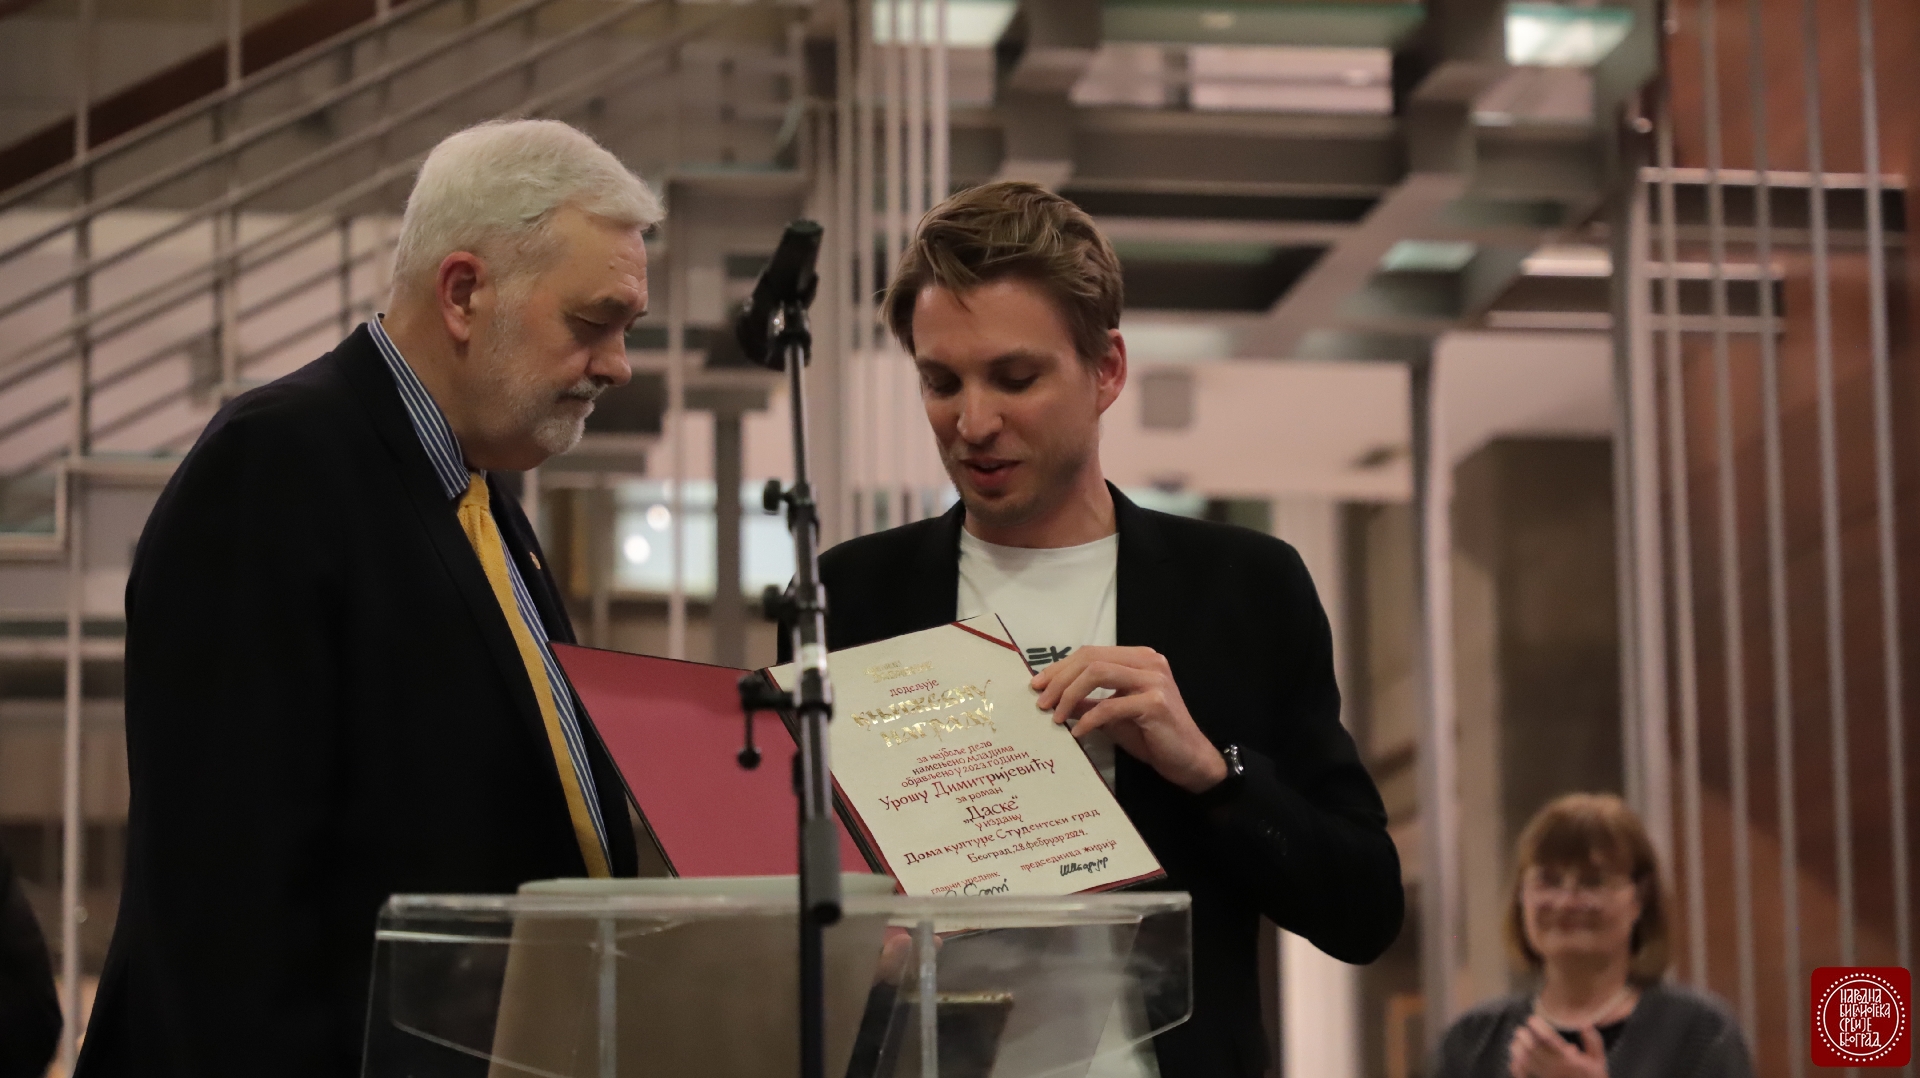 ЕК
додељује
књижевну
награду
за најбоље дело
намењено младима
објављено у 2023. години
Урошу Димитријевићу
за роман
„Даске“
у издању
Дома културе Студентски град
Београд, 28. фебруар 2024.
председница жирија
главни уредник
НАРОДНА
БИБЛИОТЕКА
СРБИЈЕ
БЕОГРАД